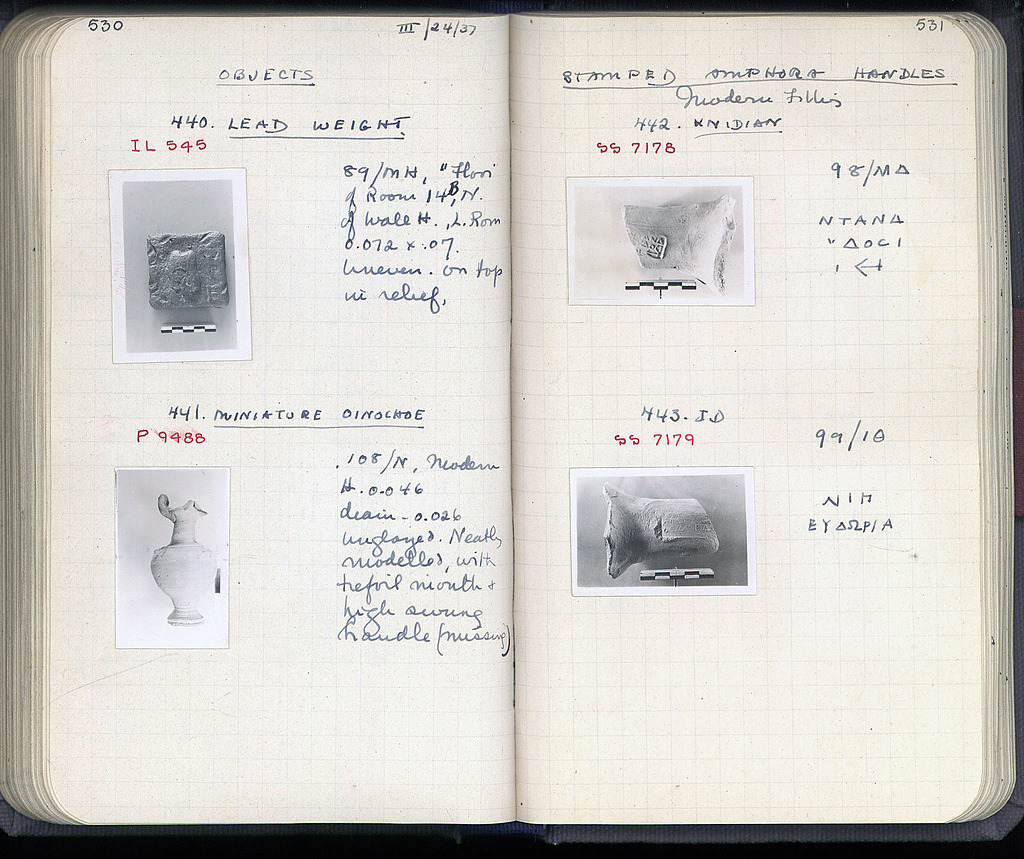 530
III/24/37
OBJECTS
440. LEAD WEIGHT
IL 545
89/ΜΗ, "Floor"
of Room 14B, N.
of Wall H., L. Rom
0.072 x .07.
Uneven. on top
in relief.
441. MINIATURE OINOCHOE
P 9488
108/N, Modern
H. 0.046
diam - 0.026
unglazed. Neatly
modelled, with
trefoil mouth &
high swung
handle (missing)
531
STAMPED AMPHORA HANDLES
Modern Fillis
442. KNIDIAN
SS 7178
98/ΜΔ
ΝΤΑΝΔ
"ΔΟCΙ
443. ID
SS 7179
99/ΙΘ
ΝΙΗ
ΕΥΔΩΡΙΑ